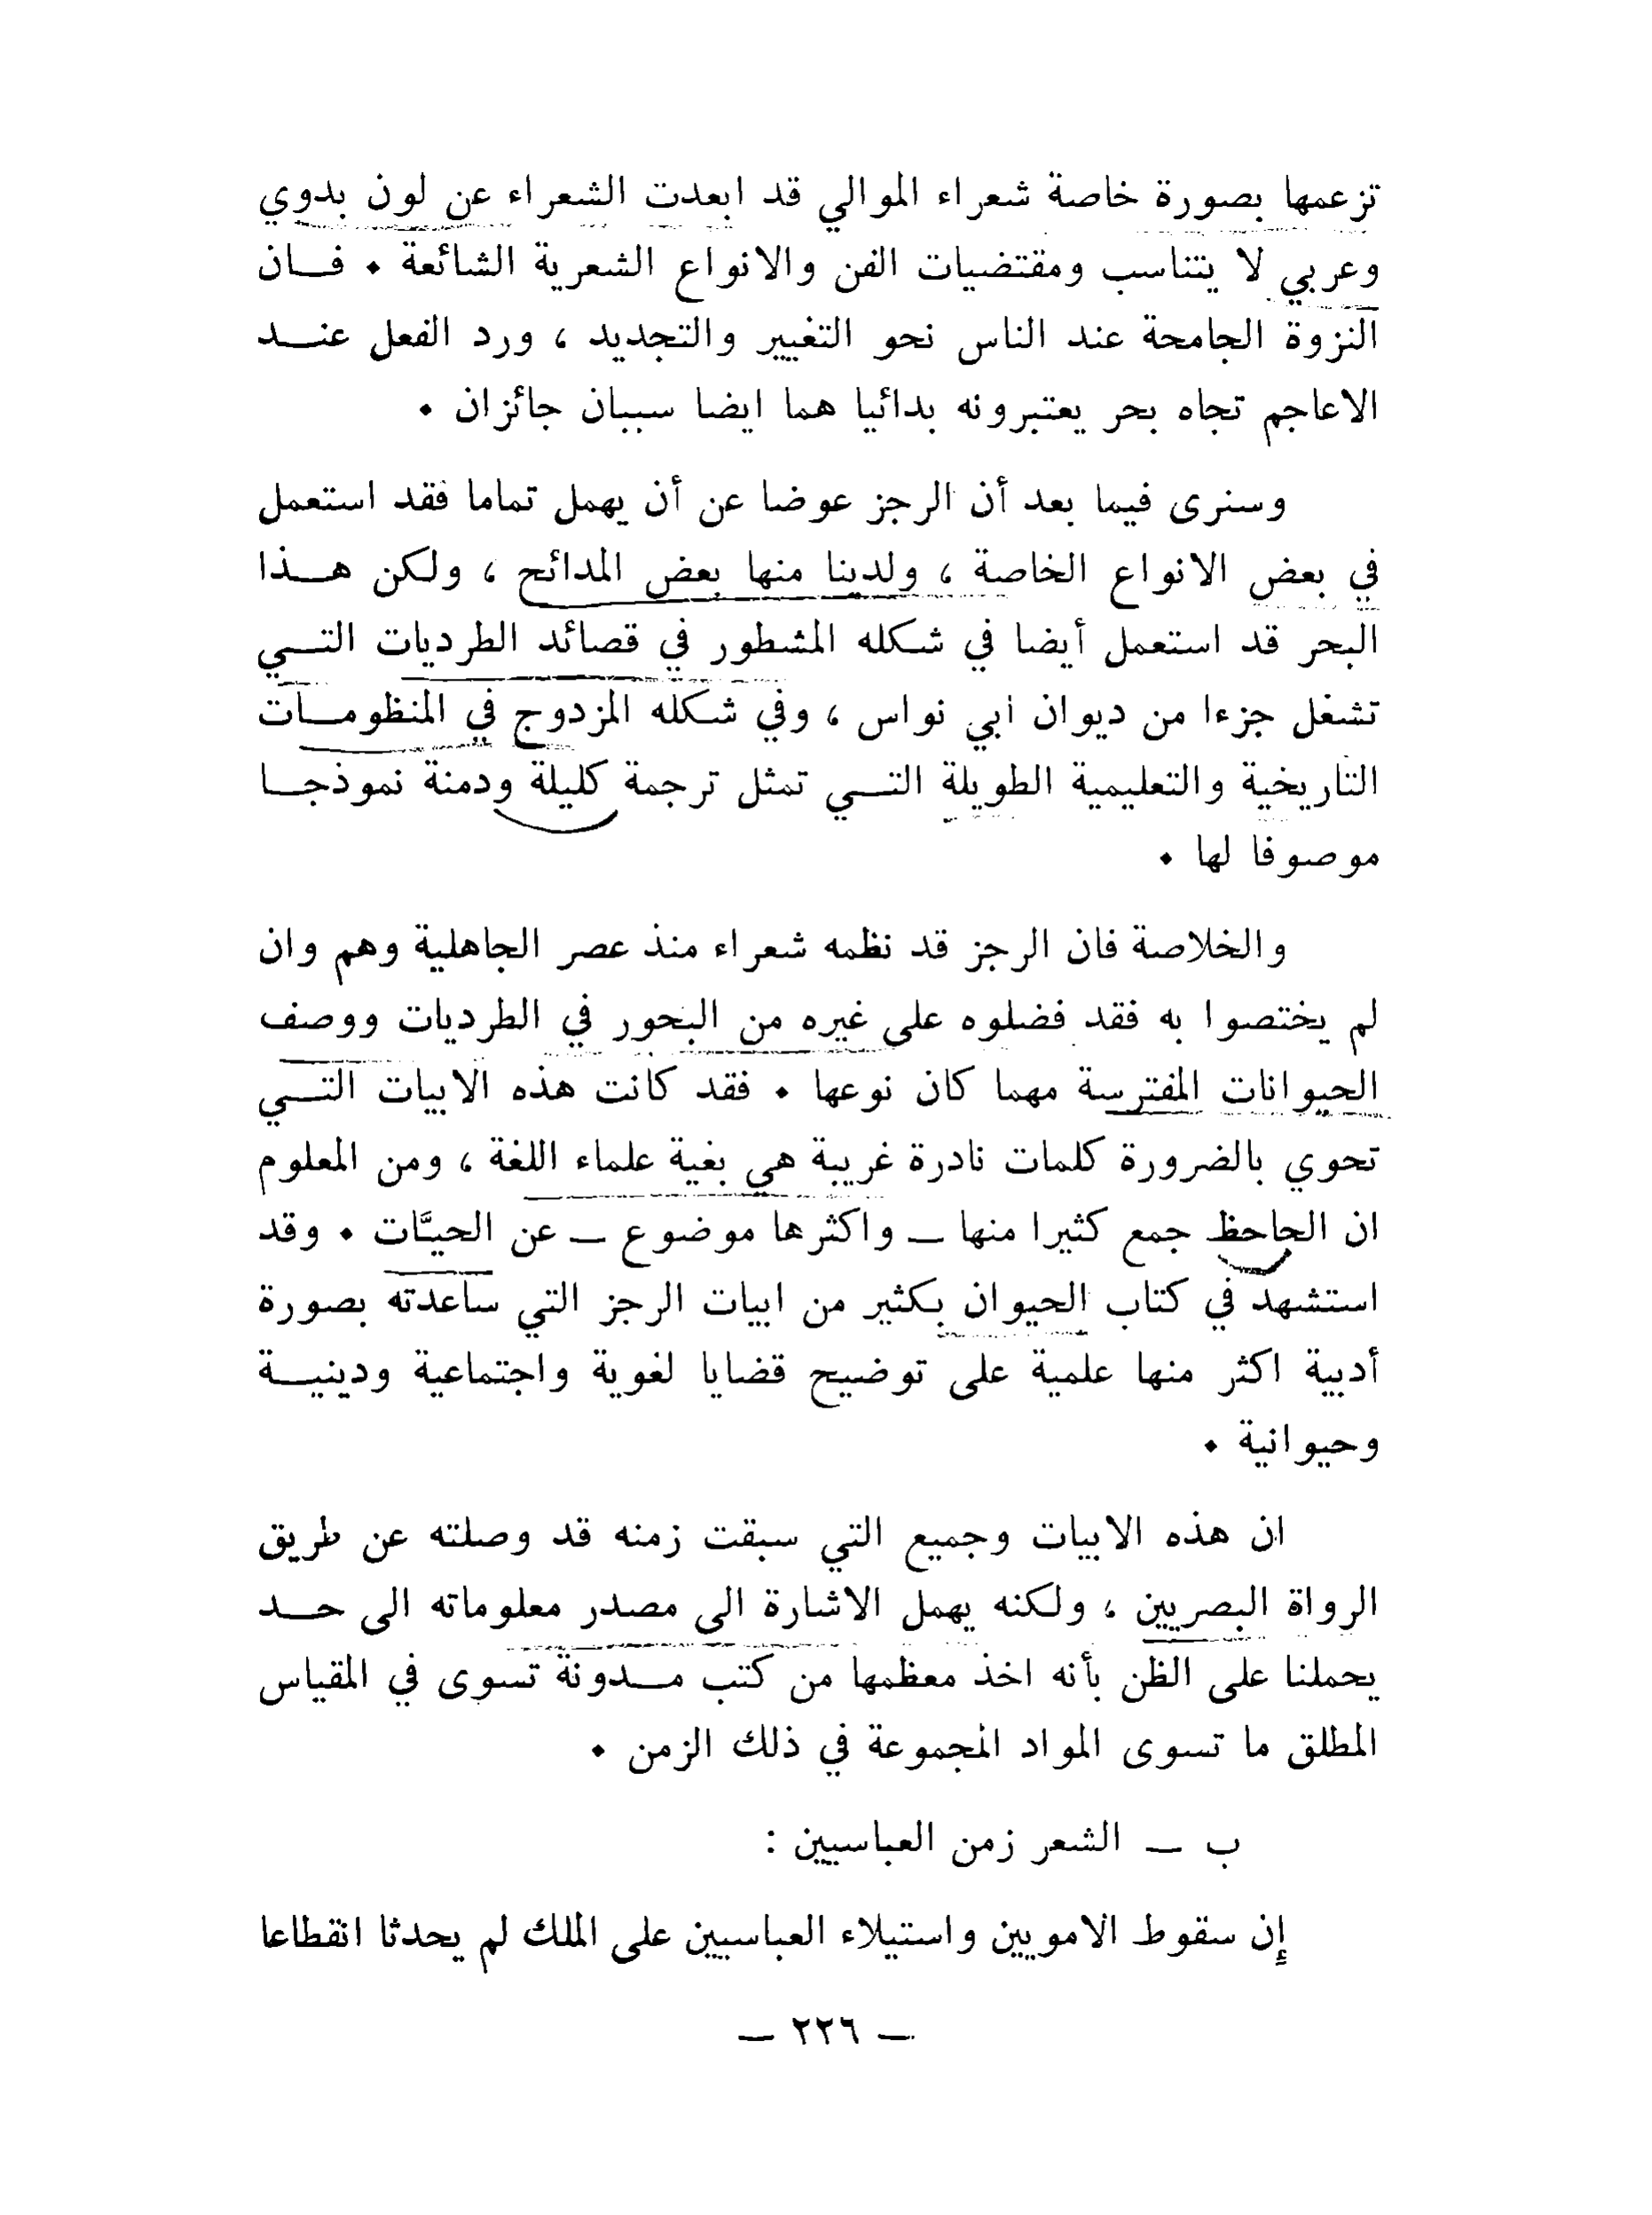 تزعمها بصورة خاصة شعراء الموالي قد ابعدت الشعراء عن لون بدوي
وعربي لا يتناسب ومقتضيات الفن والانواع الشعرية الشائعة . فــان
النزوة الجامحة عند الناس نحو التغيير والتجديد ، ورد الفعل عنــد
الاعاجم تجاه بحر يعتبرونه بدائيا هما ايضا سببان جائزان .
وسنرى فيما بعد أن الرجز عوضا عن أن يهمل تماما فقد استعمل
في بعض الانواع الخاصة ، ولدينا منها بعض المدائح ، ولكن هــذا
البحر قد استعمل أيضا في شكله المشطور في قصائد الطرديات التــي
تشغل جزءا من ديوان أبي نواس ، وفي شكله المزدوج في المنظومــات
التاريخية والتعليمية الطويلة التــي تمثل ترجمة كليلة ودمنة نموذجــا
موصوفا لها .
والخلاصة فان الرجز قد نظمه شعراء منذ عصر الجاهلية وهم وان
لم يختصوا به فقد فضلوه على غيره من البحور في الطرديات ووصف
الحيوانات المفترسة مهما كان نوعها . فقد كانت هذه الابيات التــي
تحوي بالضرورة كلمات نادرة غريبة هي بغية علماء اللغة ، ومن المعلوم
ان الجاحظ جمع كثيرا منها ــ واكثرها موضوع ــ عن الحيَّات . وقد
استشهد في كتاب الحيوان بكثير من ابيات الرجز التي ساعدته بصورة
أدبية اكثر منها علمية على توضيح قضايا لغوية واجتماعية ودينيــة
وحيوانية .
ان هذه الابيات وجميع التي سبقت زمنه قد وصلته عن طريق
الرواة البصريين ، ولكنه يهمل الاشارة الى مصدر معلوماته الى حــد
يحملنا على الظن بأنه اخذ معظمها من كتب مــدونة تسوى في المقياس
المطلق ما تسوى المواد المجموعة في ذلك الزمن .
ب ــ الشعر زمن العباسيين :
إن سقوط الامويين واستيلاء العباسيين على الملك لم يحدثا انقطاعا
ــ ٢٢٦ ــ